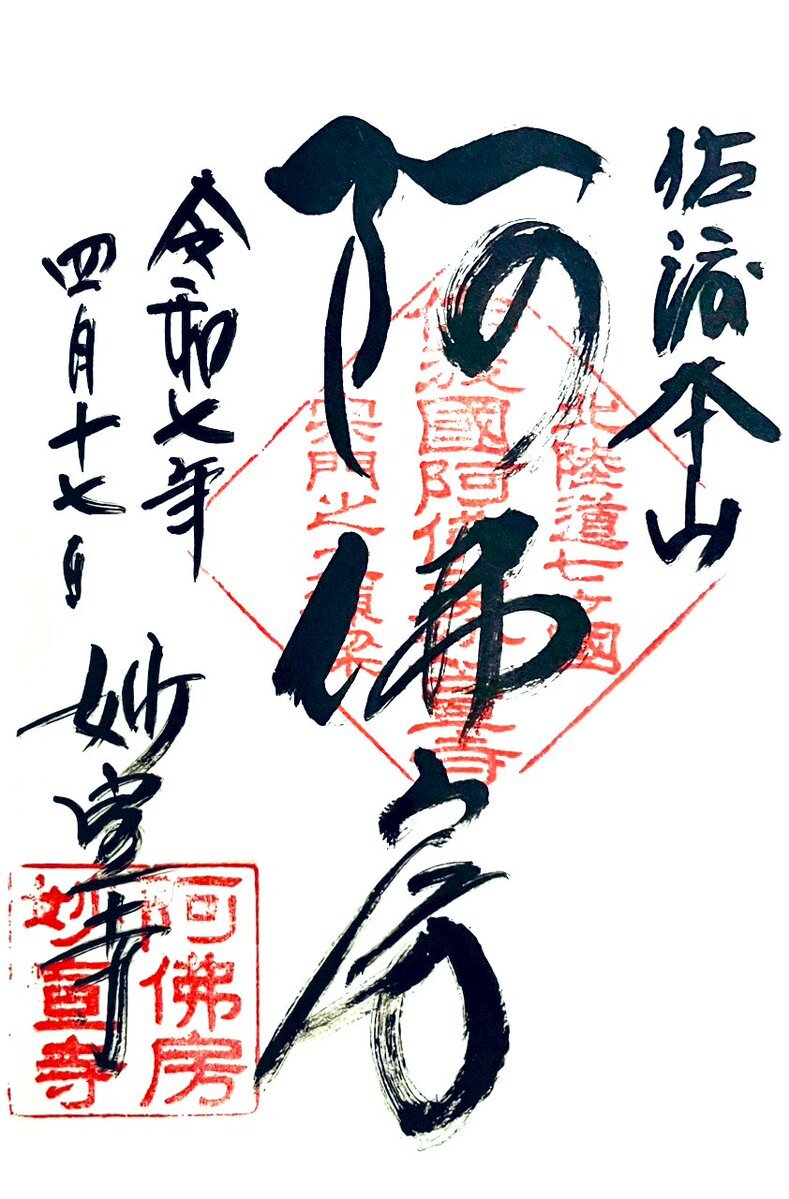 佐渡本山
阿佛房
令和七年
四月十七日
妙宣寺
北陸道七ヶ國
佐渡國阿佛房妙宣寺
宗門之大棟梁
阿佛房
妙宣寺